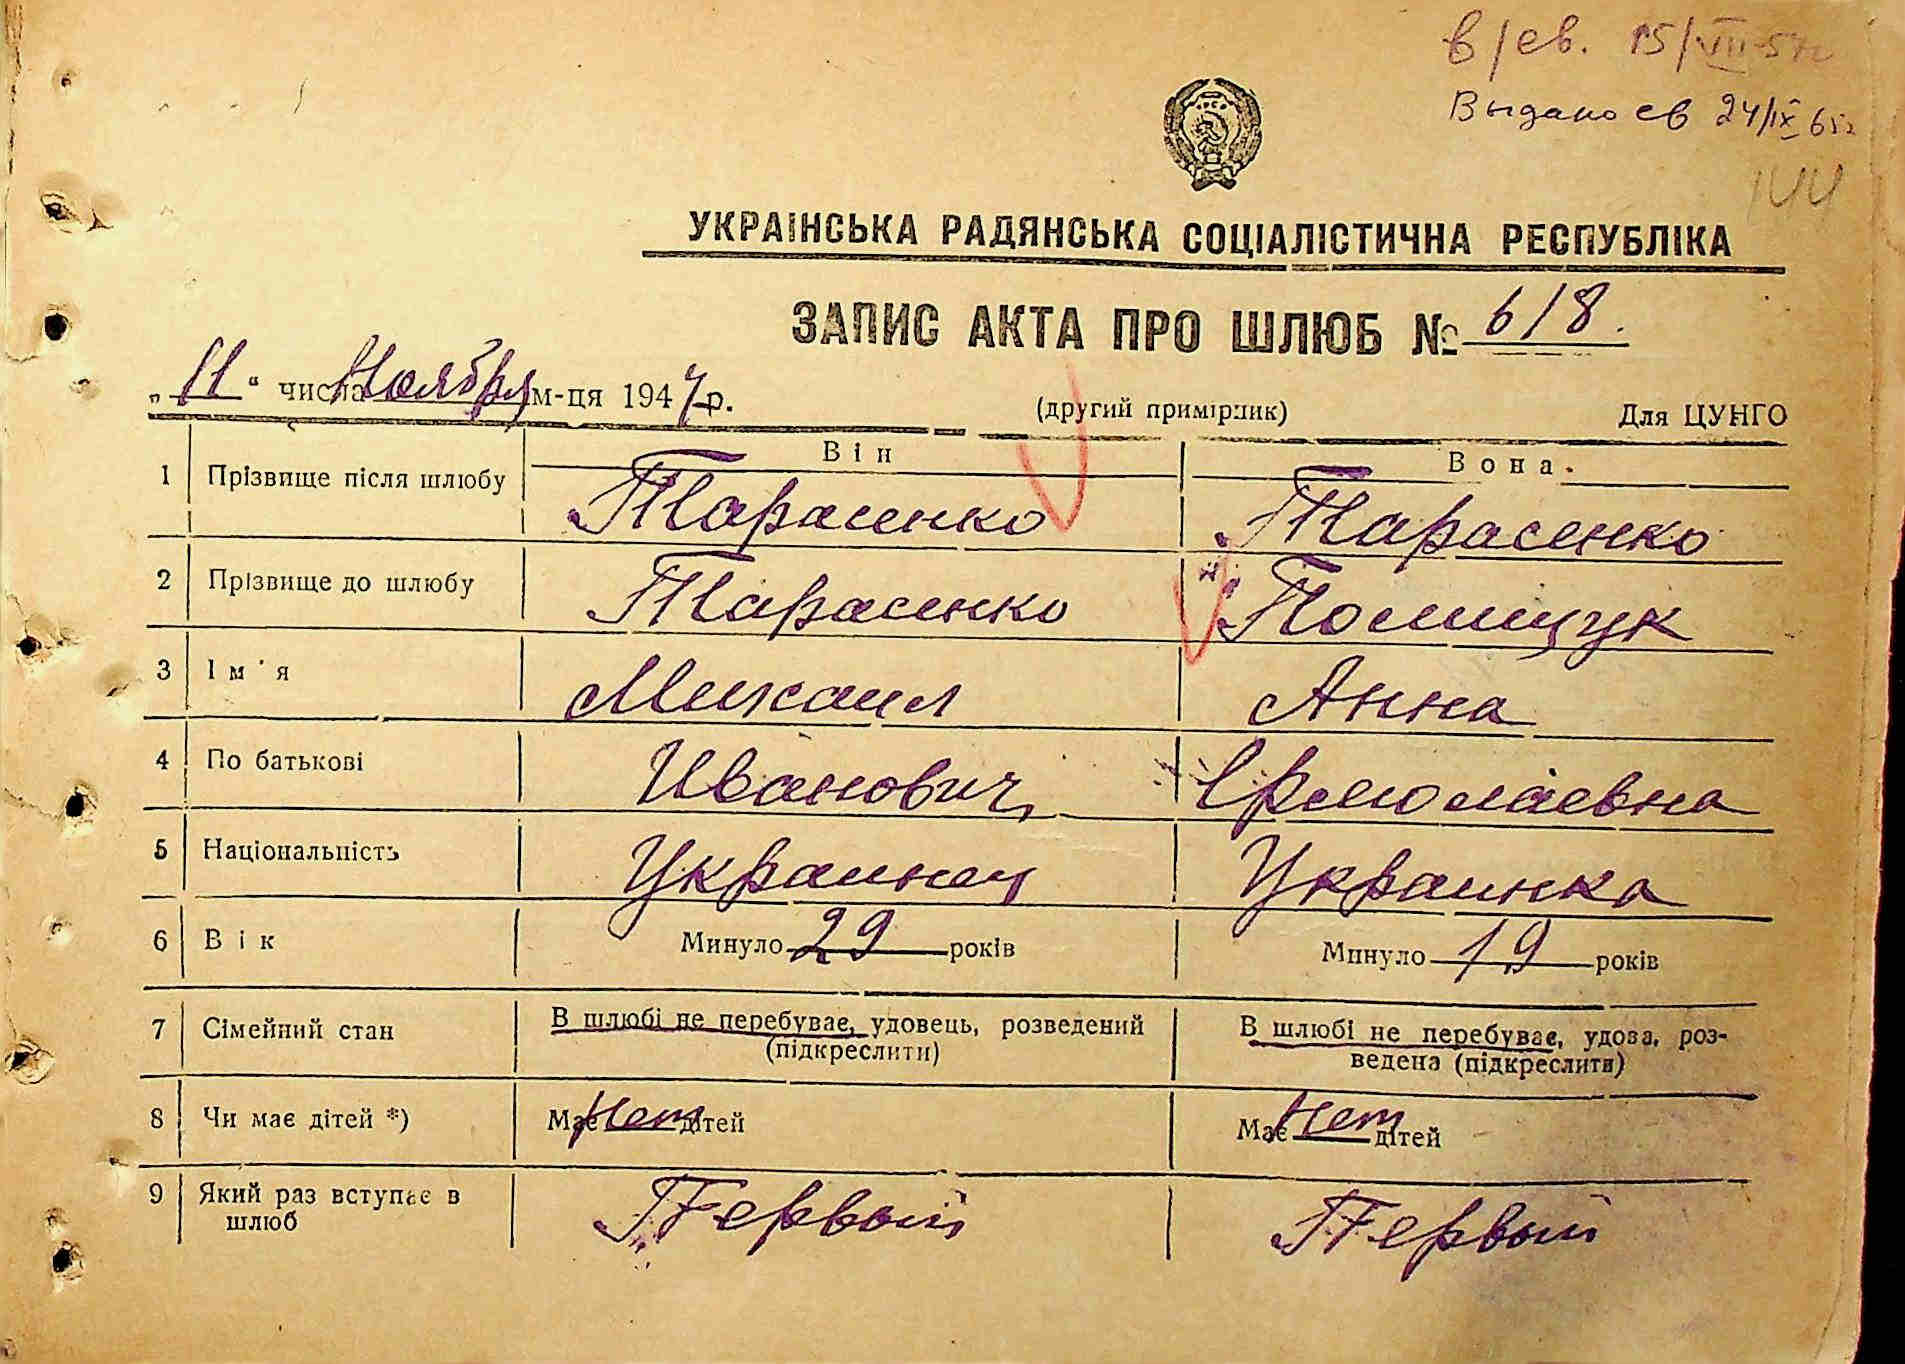 в/ев. 15/VII-57г
Выдано св 24/IX 65г
144
УКРАЇНСЬКА РАДЯНСЬКА СОЦІАЛІСТИЧНА РЕСПУБЛІКА
ЗАПИС АКТА ПРО ШЛЮБ № 618.
„11“ числа Ноября м-ця 1947 р.
(другий примірник)
Для ЦУНГО
Він Вона.
1 Прізвище після шлюбу Тарасенко Тарасенко
2 Прізвище до шлюбу Тарасенко Полищук
3 Ім'я Михаил Анна
4 По батькові Иванович Ермолаевна
5 Національність Украинец Украинка
6 Вік Минуло 29 років Минуло 19 років
7 Сімейний стан В шлюбі не перебуває, удовець, розведений В шлюбі не перебуває, удова, роз-
(підкреслити) ведена (підкреслити)
8 Чи має дітей *) Має Нет дітей Має Нет дітей
9 Який раз вступає в Первый Первый
шлюб